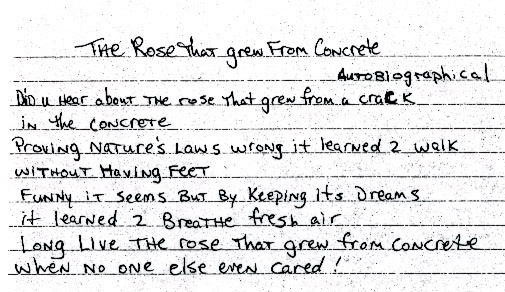 The Rose that grew From Concrete
Autobiographical
Did u Hear about The rose that grew from a crack
in the concrete
Proving Nature's Laws wrong it learned 2 walk
without Having Feet
Funny it seems But By Keeping its Dreams
it learned 2 Breathe fresh air
Long Live The rose that grew from concrete
when no one else even cared!